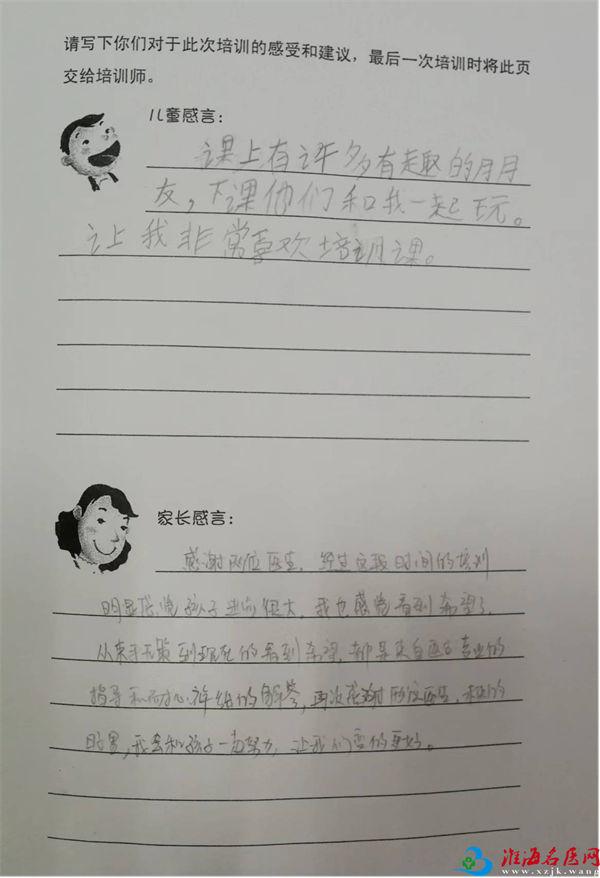 请写下你们对于此次培训的感受和建议，最后一次培训时将此页
交给培训师。
儿童感言：
课上有许多有趣的朋
友，下课他们和我一起玩。
让我非常喜欢培训课。
家长感言：
感谢两位医生，经过这段时间的培训
明显感觉孩子进步很大，我也感觉看到希望了，
从束手无策到现在的看到希望，都是来自医生专业的
指导和耐心详细的解答，再次感谢两位医生，
的
日子里，我会和孩子一起努力，让我们变的更好。
淮海名医网
www.xzjk.wang